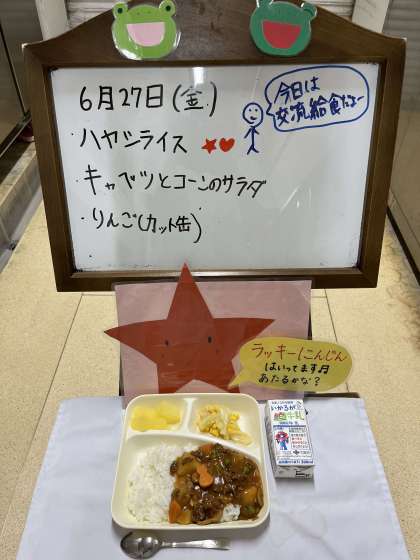 6月27日(金)
今日は
交流給食だよー
・ハヤシライス
・キャベツとコーンのサラダ
・りんご(カット缶)
ラッキーにんじん
はいってます♬
あたるかな?
いかるが
牛乳